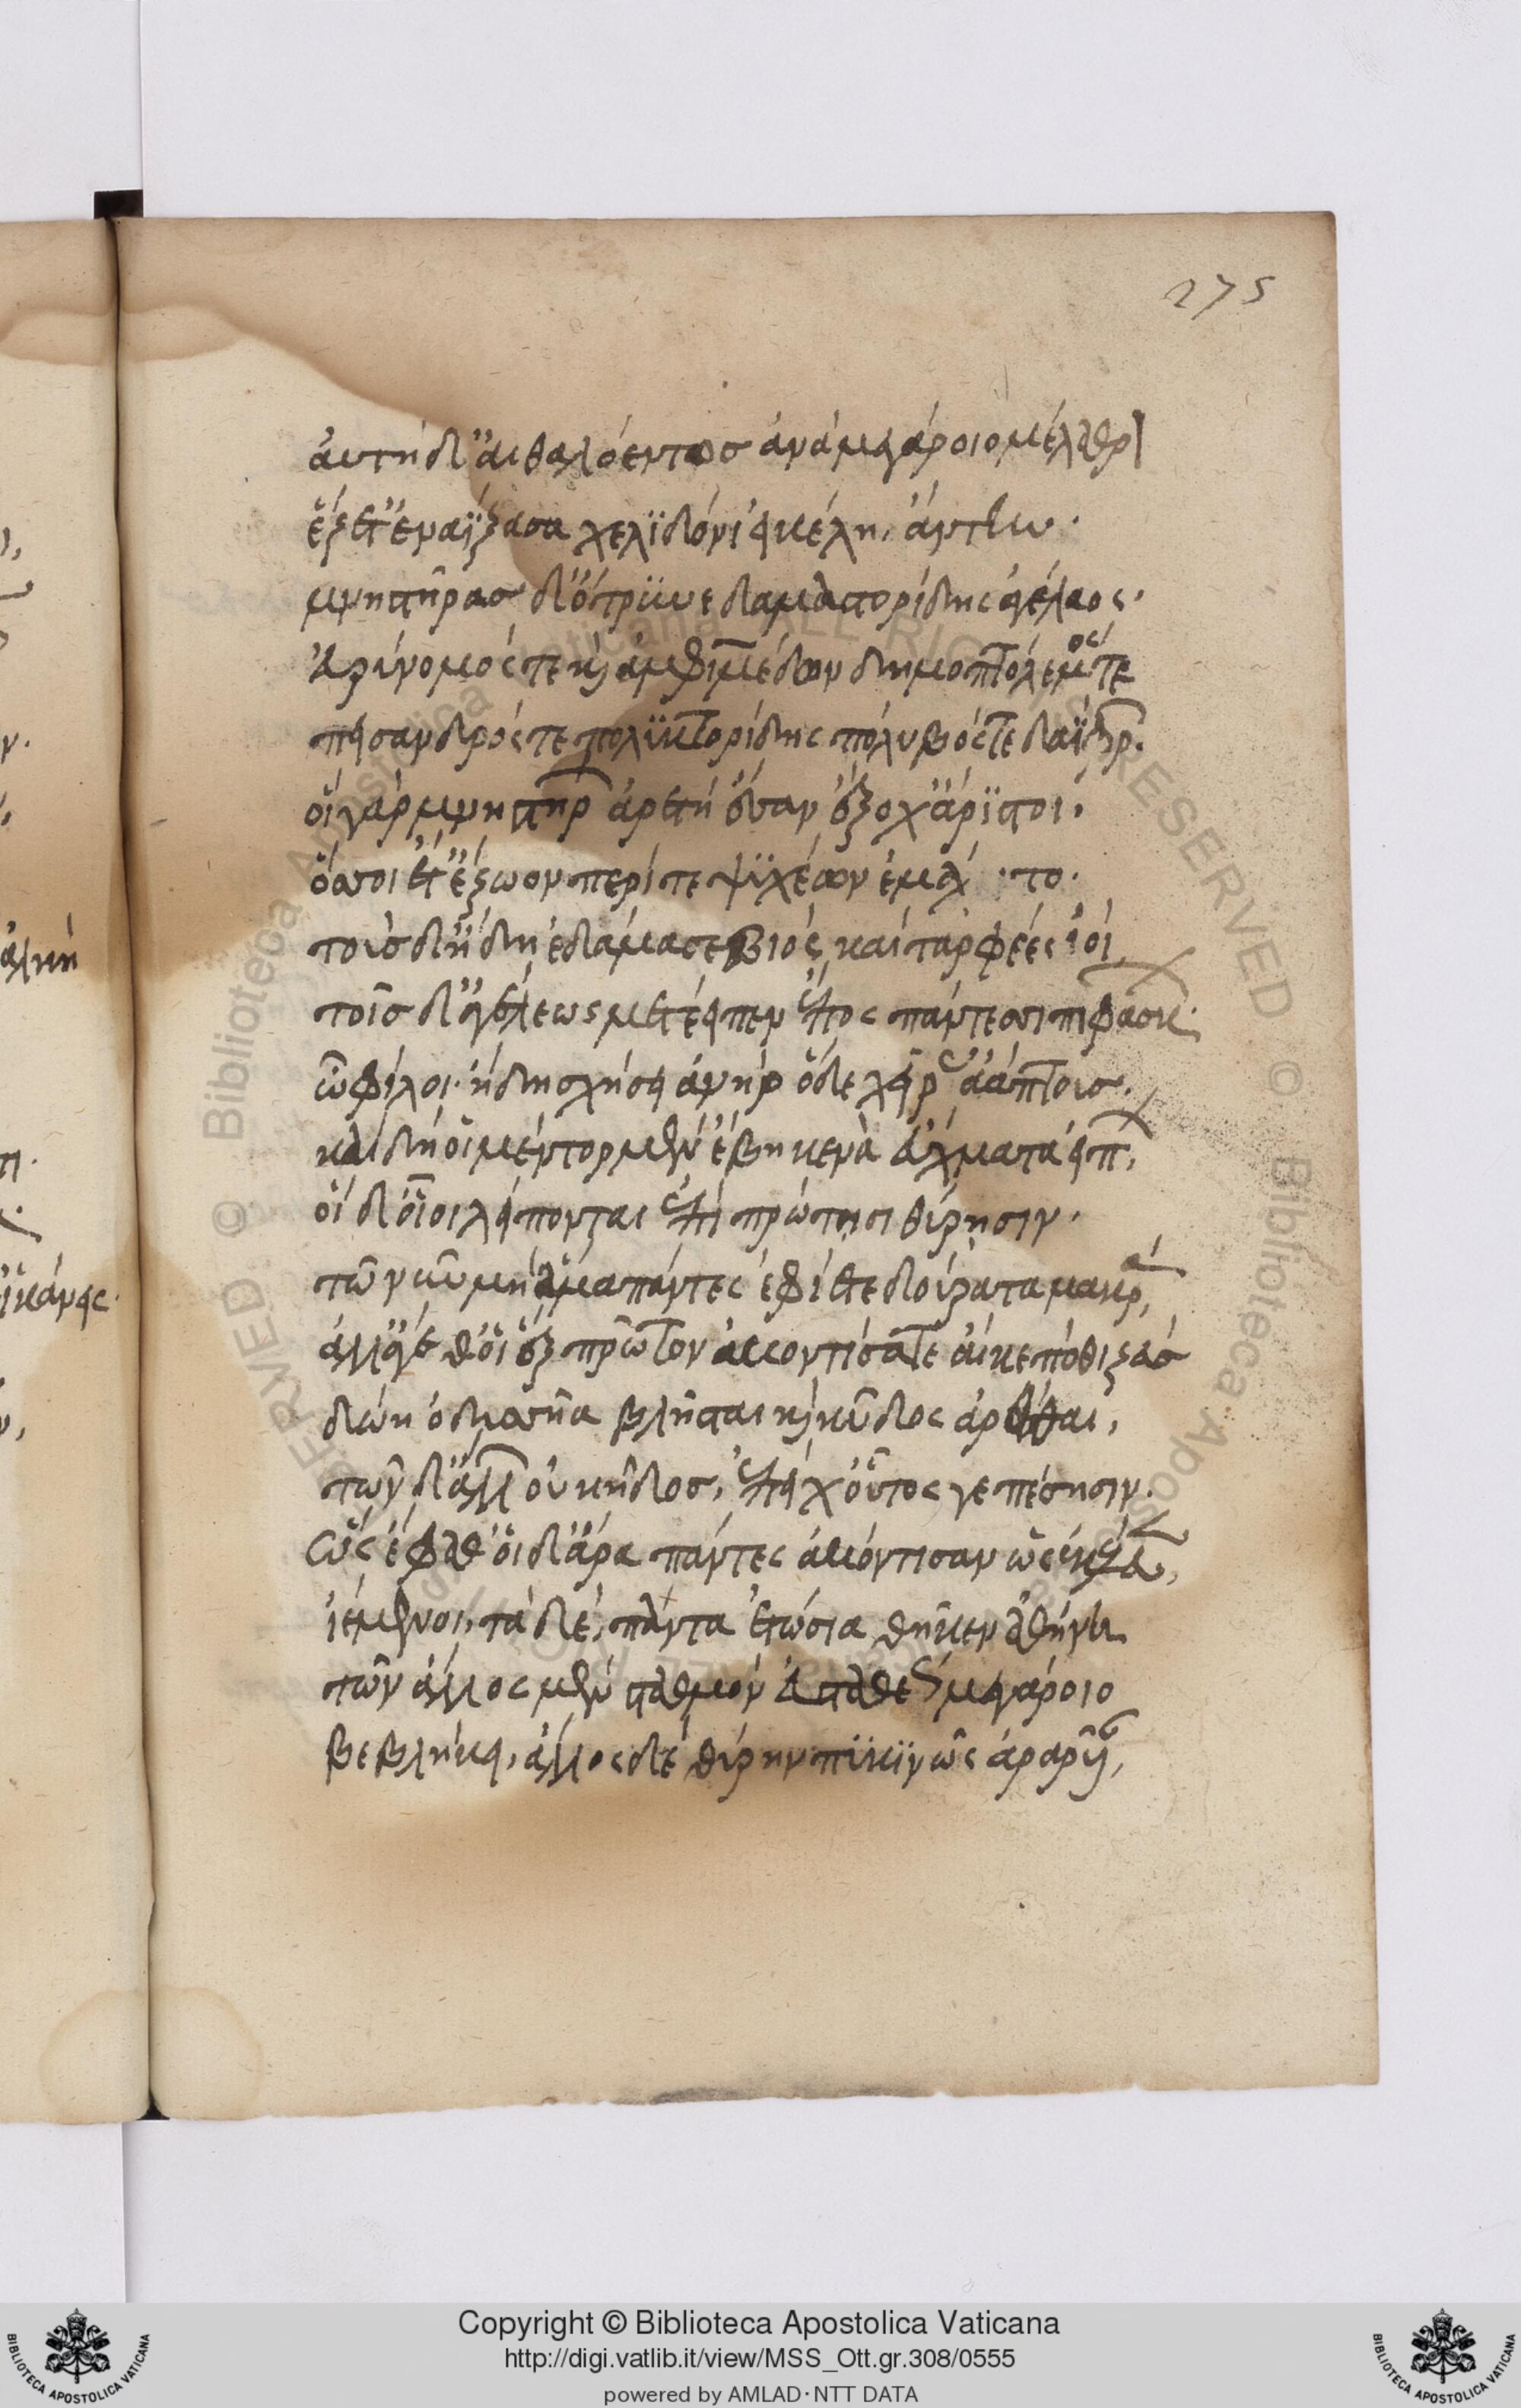 275
ἀυτὴ δ' ἀιθαλόεντος ἀνὰ μεγάροιο μέλαθρ
ἕζετ' ἐπαΐξασα χελϊδόνι ἐικέλη ἄντην.
μνηστῆρας δ' ὄτρϋνε δαμαστορίδης ἀγέλαος.
Εὐρύνομός τε καὶ ἀμφιμέδων δημοπτόλεμός τε
πείσανδρός τε πολϋκτορίδης πόλυβός τε δαΐφρ.
οἱ γὰρ μνηστήρ ἀρετῆ ἔσαν ἔξοχ' ἄρϊστοι.
ὅσσοι ἔτ' ἔζωον περί τε ψϋχέων ἐμάχοντο.
τοὺς δ' ἤδη ἐδάμασε βιὸς καὶ ταρφέες ἰοί
τοῖς δ' ἀγέλεως μετέειπεν ἔπος πάντεσσι πιφάσκ.
ὦ φίλοι· ἤδη σχήσει ἀνὴρ ὅδε χεῖρ ἀάπτους.
καὶ δή οἱ μέντορ μὲν ἔβη κενὰ εὔγματα εἰπ,
οἱ δ' οἶοι λείπονται ἐπὶ πρώτησι θύρησιν.
τῶ νῦν μὴ ἅμα πάντες ἐφίετε δούρατα μακρά,
ἀλλ' ἄγεθ' οἱ ἓξ πρῶτον ἀκοντίσατε ἄι κε πόθι ζεὺς
δώη ὀδυσσῆα βλῆσθαι καὶ κῦδος ἀρέσθαι,
τῶν δ' ἄλλ οὐ κῆδος, ἐπεί χ' οὗτος γε πέσησιν.
ὣς ἔφαθ' οἱ δ' ἄρα πάντες ἀκόντισαν ὡς ἐκέλευ,
ἱέμενοι, τὰ δέ, πάντα ἐτώσια θῆκεν ἀθήνη.
τῶν ἄλλος μὲν σταθμὸν ἐυσταθέος μεγάροιο
βεβλήκει, ἄλλος δὲ θύρην πϋκϊνῶς ἀραρυῖαν,
αλκὴ
ϊκάνεις.
Copyright © Biblioteca Apostolica Vaticana
http://digi.vatlib.it/view/MSS_Ott.gr.308/0555
powered by AMLAD·NTT DATA